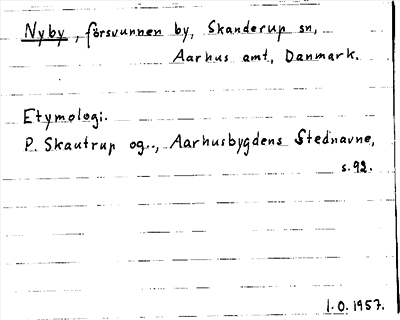 Nyby, försvunnen by, Skanderup sn,
Aarhus amt, Danmark.
Etymologi.
P. Skautrup og.., Aarhusbygdens Stednavne,
s. 92.
I.O. 1957.